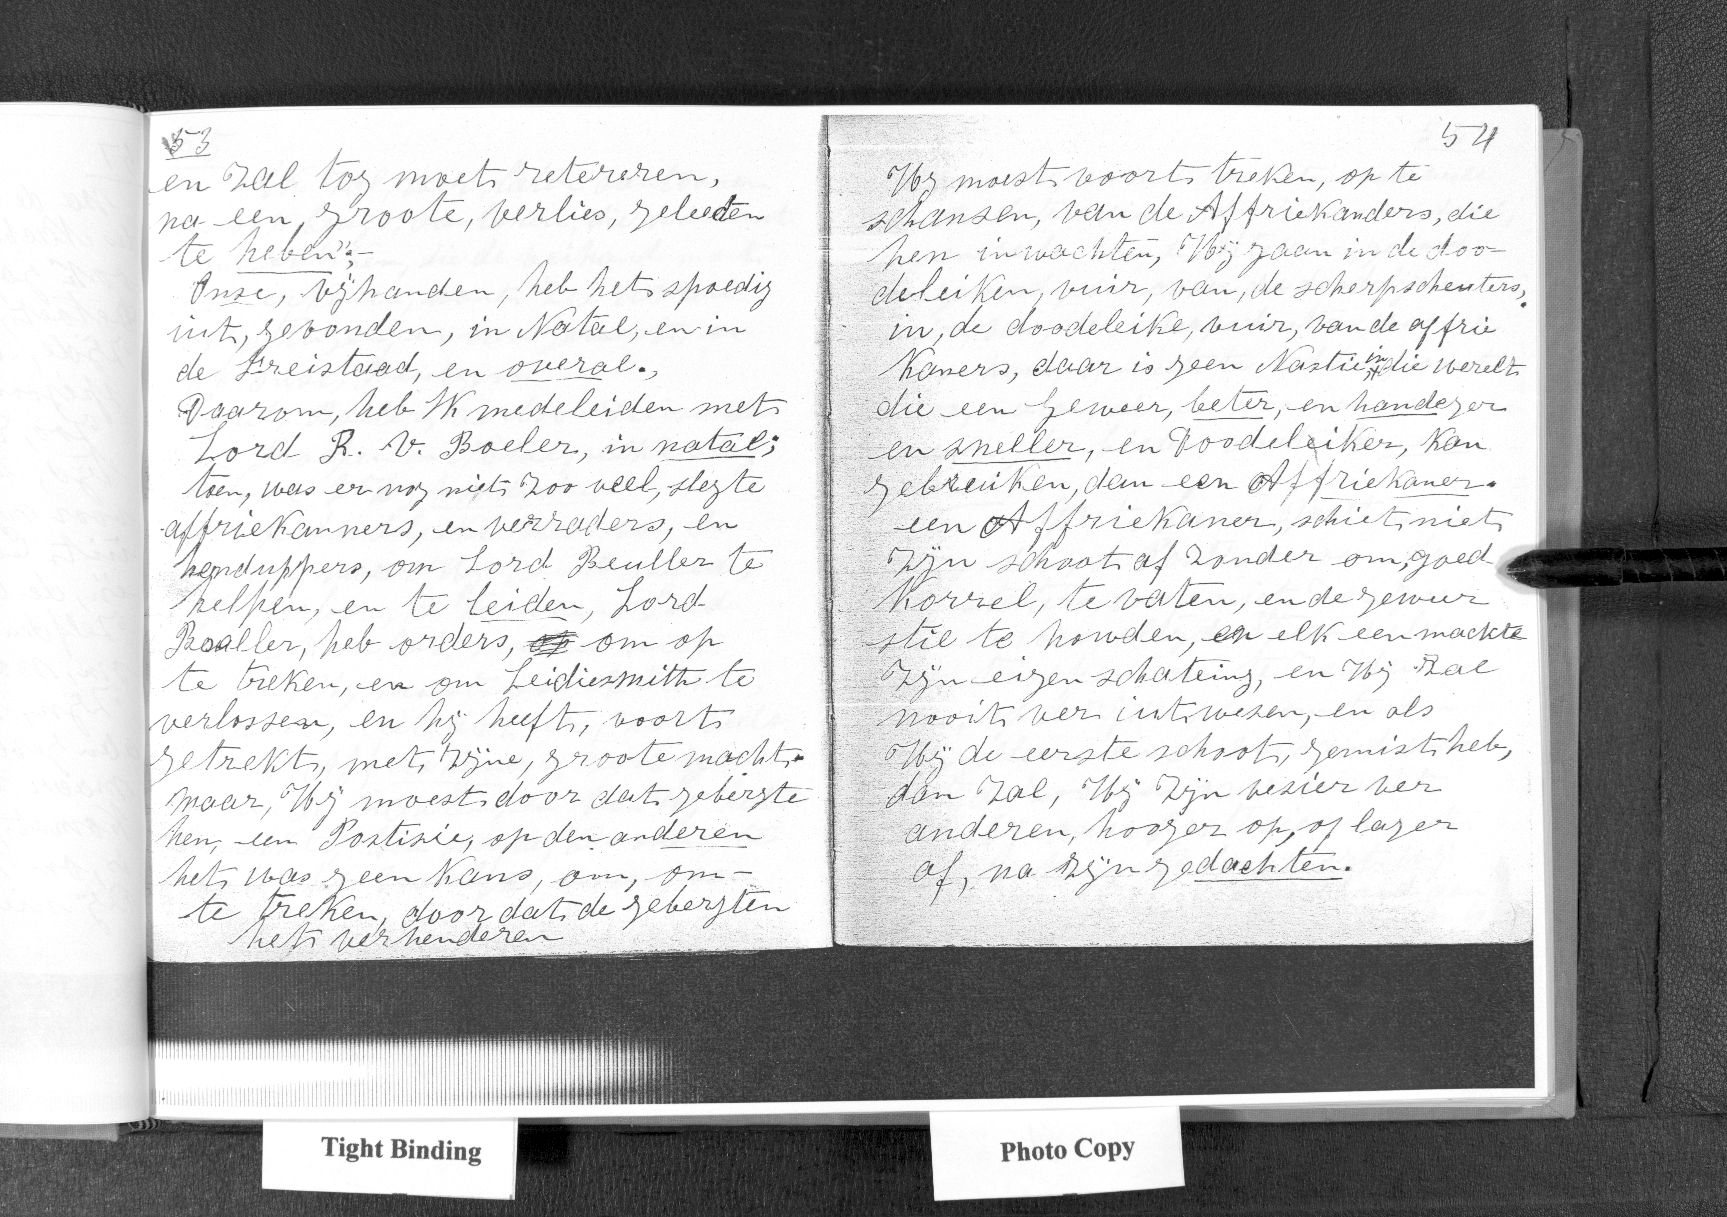 53
en zal tog moet retereren,
na een, groote, verlies, geleeden
te heben";-
Onze, vijhanden, heb het spoedig
uit, gevonden, in Natal, en in
de Freistaad, en overal.,
Daarom, heb Ik medeleiden met
Lord R. V. Boeler, in natal;
toen, was er nog niet zoo veel, slegte
affriekanners, en verraders, en
henduppers, om Lord Beuller te
helpen, en te leiden, Lord
Boaller, heb orders, om op
te treken, en om Leidiesmith te
verlossen, en hij heeft, voort
getrekt, met zijne, groote macht.
maar, Hij moest door dat gebergte
hen, een Postisie, op den anderen
het was geen kans, om, om-
te treken, door dat de gebergten
het verhenderen
54
Hij moest voort treken, op te
schansen, van de Affriekanders, die
hen inwachten, Hij gaan in de doo-
deleiken, vuir, van, de scherpscheuters,
in, de doodeleike, vuir, van de affrie
kaners, daar is geen Nastie, in die werelt
die een geweer, beter, en handeger
en sneller, en Doodeleiker, kan
gebreuiken, dan een Affriekaner.
een Affriekaner, schiet niet
zijn schoot af zonder om, goed
korrel, te vaten, en de geweer
stil te howden, en elk een mackte
zijn eigen schateing, en Hij zal
nooit ver uit wesen, en als
Hij de eerste schoot, gemist heb,
dan zal, Hij zijn vesier ver
anderen, hooger op, of lager
af, na zijn gedachten.
Tight Binding
Photo Copy